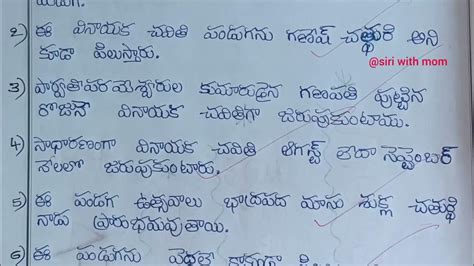 పండుగ.
2) ఈ వినాయక చవితి పండుగను గణేష్ చతుర్థి అని
కూడా పిలుస్తారు.
@siri with mom
3) పార్వతీపరమేశ్వరుల కుమారుడైన గణపతి పుట్టిన
రోజునే వినాయక చవితిగా జరుపుకుంటాము.
4) సాధారణంగా వినాయక చవితి ఆగస్ట్ లేదా సెప్టెంబర్
నెలలో జరుపుకుంటారు.
5) ఈ పండగ ఉత్సవాలు భాద్రపద మాసు శుక్ల చతుర్థి
నాడు ప్రారంభమవుతాయి.
6) ఈ పండుగను